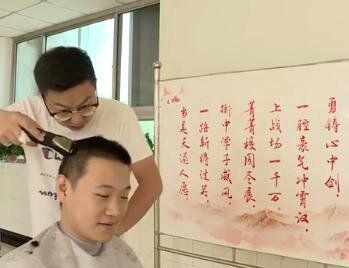 勇铸心中剑,
一腔豪气冲霄汉,
上战场一千万,
菁菁校园尽展,
衡中学子威风,
一路斩将过关,
当是天遂人愿